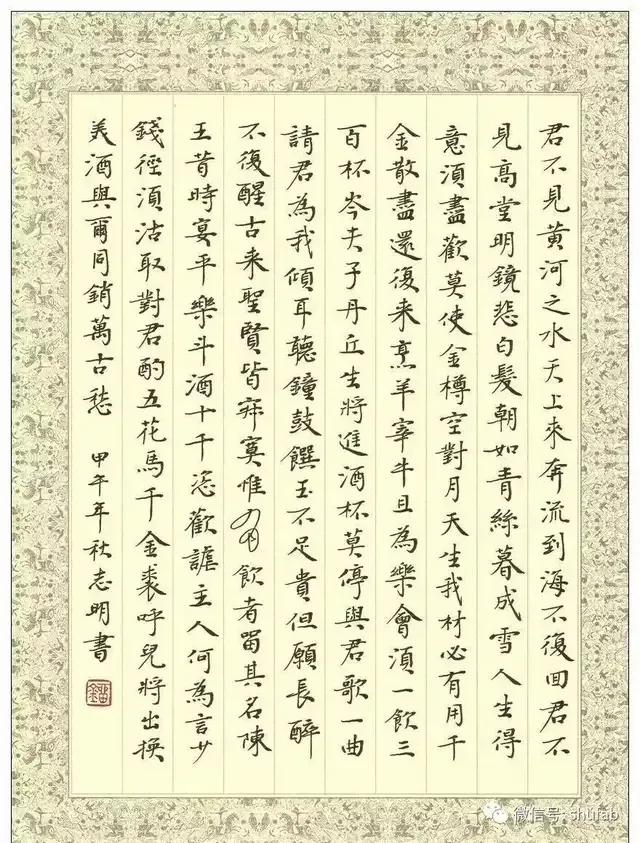 君不見黃河之水天上來奔流到海不復回君不
見高堂明鏡悲白髮朝如青絲暮成雪人生得
意須盡歡莫使金樽空對月天生我材必有用千
金散盡還復来烹羊宰牛且為樂會須一飲三
百杯岑夫子丹丘生將進酒杯莫停與君歌一曲
請君為我傾耳聽鐘鼓饌玉不足貴但願長醉
不復醒古来聖賢皆寂寞惟有飲者留其名陳
王昔時宴平樂斗酒十千恣歡謔主人何為言少
錢徑須沽取對君酌五花馬千金裘呼兒將出換
美酒與爾同銷萬古愁 甲午年秋志明書
微信号: shufab